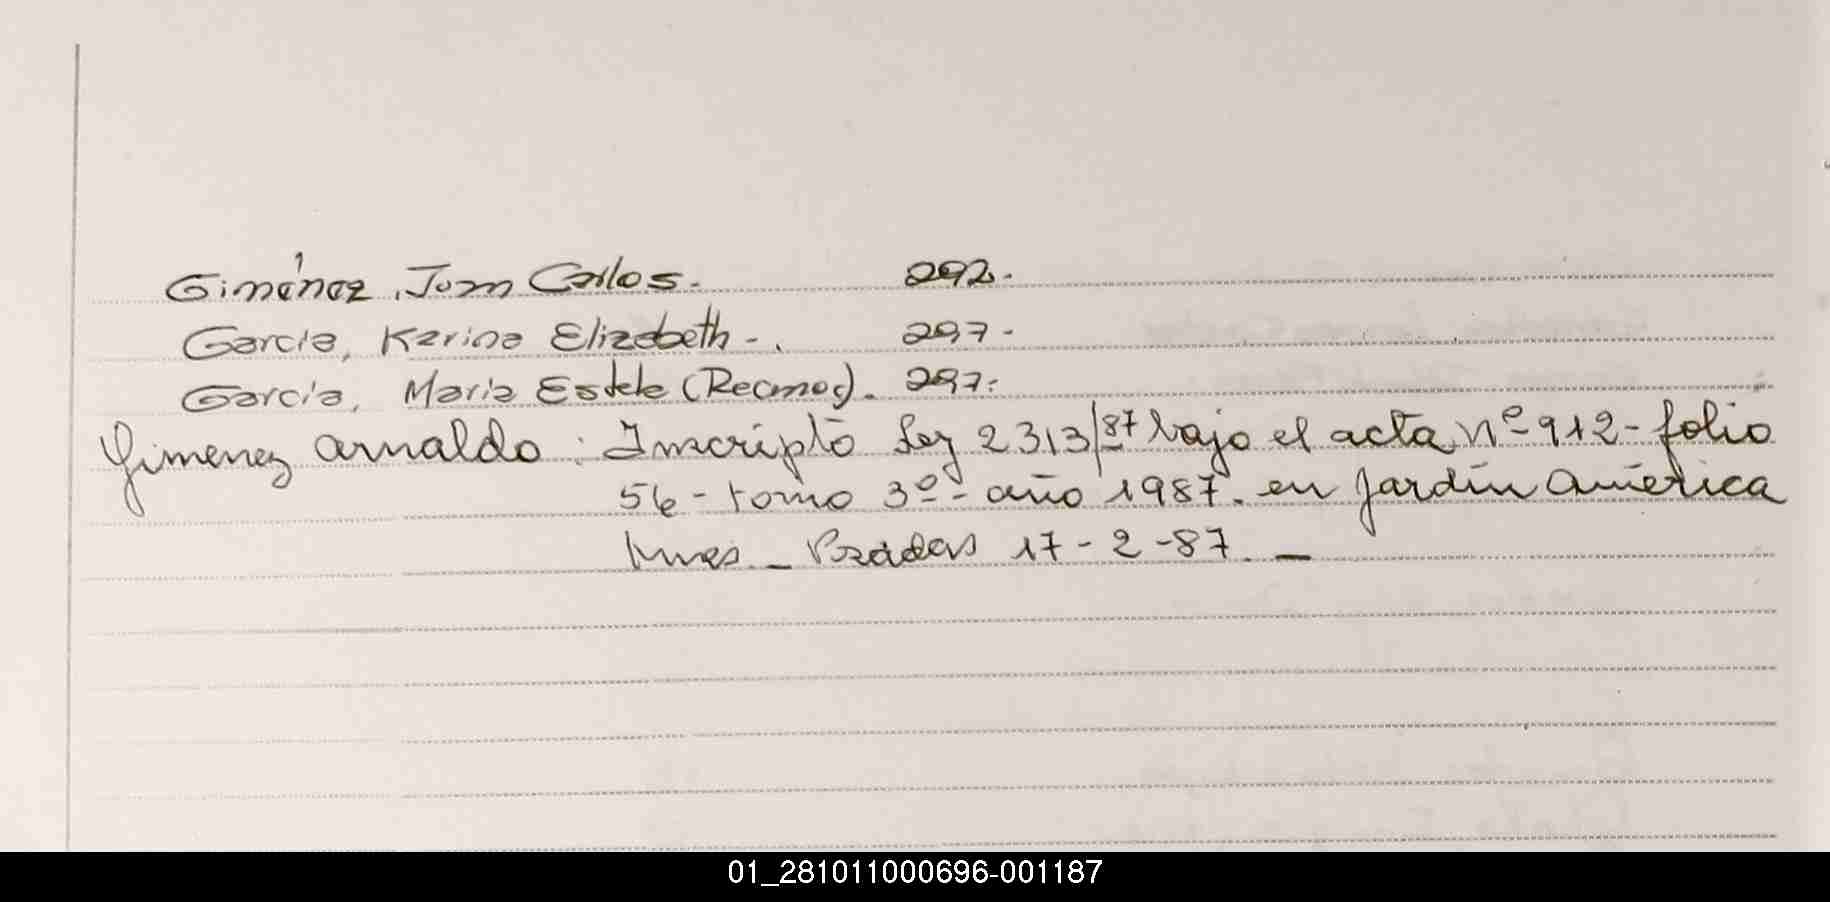 Giménez, Juan Carlos. 292.
Garcia, Karina Elizabeth -. 297-
Garcia, Maria Estela (Recnoc). 297.
Gimenez Arnaldo: Inscripto Ley 2313/87 bajo el acta nº 912 - folio
56 - tomo 3º - año 1987. en Jardín América
Mnes - Posadas 17-2-87. -
01_281011000696-001187